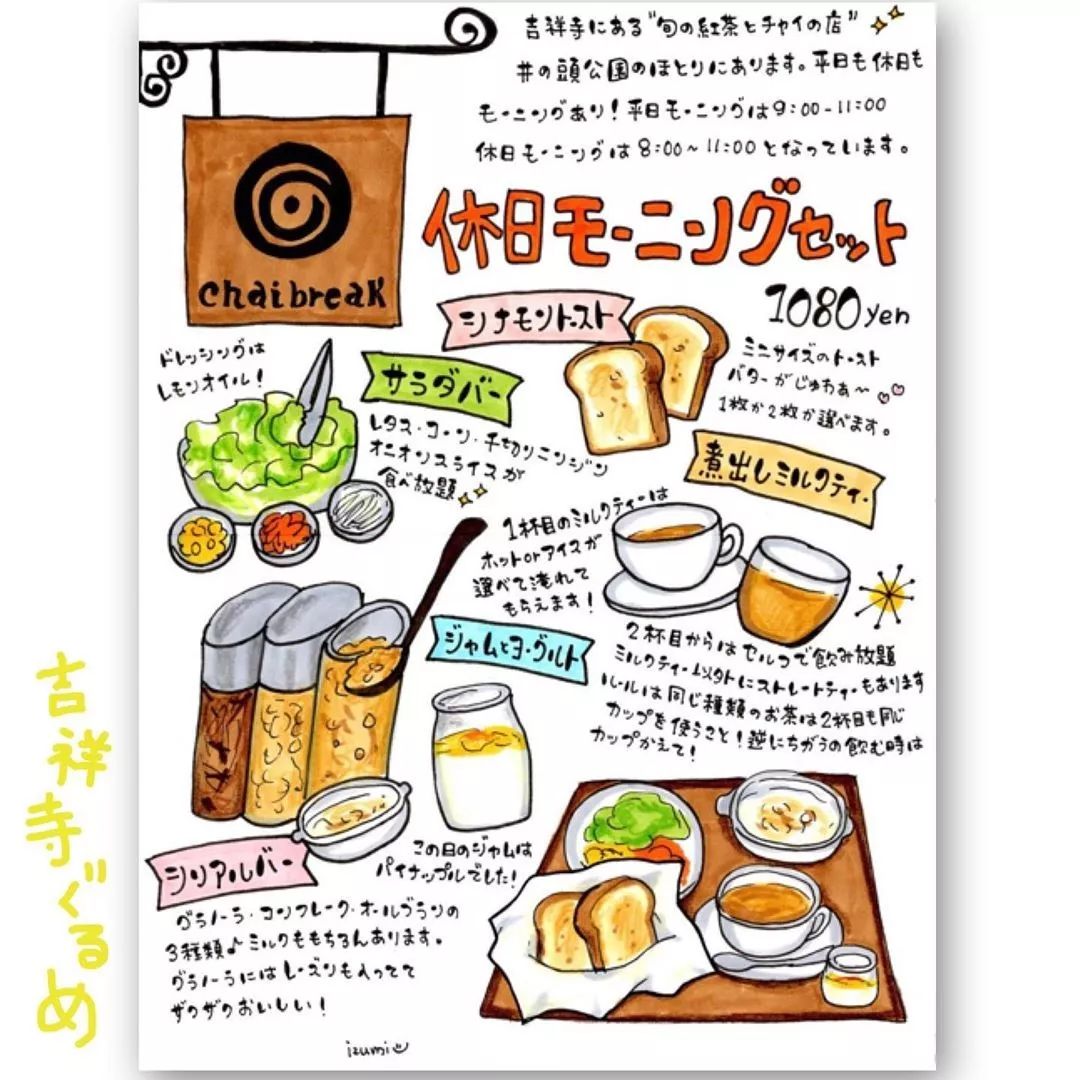 吉祥寺にある"旬の紅茶とチャイの店"
井の頭公園のほとりにあります。平日も休日も
モーニングあり!平日モーニングは9:00-11:00
休日モーニングは8:00～11:00となっています。
chai break
休日モーニングセット
1080yen
シナモントースト
ミニサイズのトースト
バターがじゅわぁ～
1枚か2枚か選べます。
ドレッシングは
レモンオイル!
サラダバー
レタス・コーン・千切りニンジン
オニオンスライスが
食べ放題
煮出しミルクティー
1杯目のミルクティーは
ホットorアイスが
選べて淹れて
もらえます!
2杯目からはセルフで飲み放題
ミルクティー以外にストレートティーもあります
ルールは同じ種類のお茶は2杯目も同じ
カップを使うこと!逆にちがうの飲む時は
カップかえて!
ジャムとヨーグルト
この日のジャムは
パイナップルでした!
シリアルバー
グラノーラ・コンフレーク・オールブランの
3種類♪ミルクももちろんあります。
グラノーラにはレーズンも入ってて
ザクザクおいしい!
izumi
吉祥寺ぐるめ